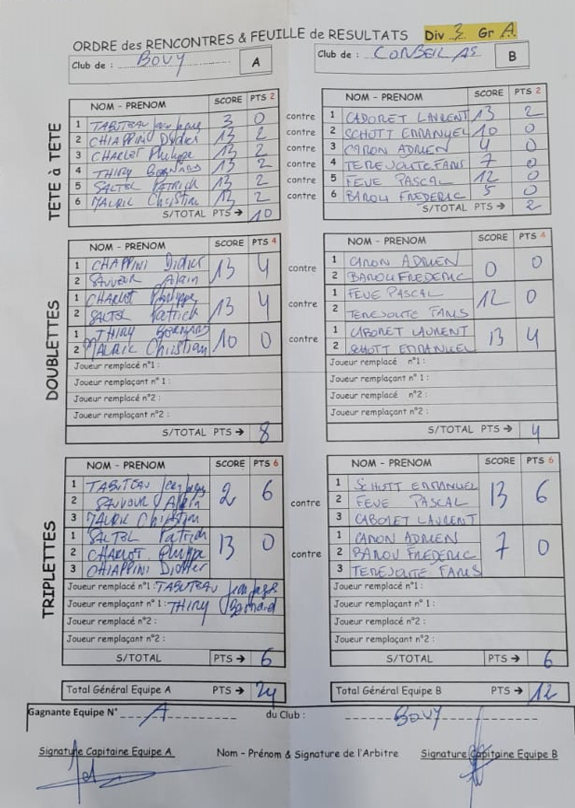 ORDRE des RENCONTRES & FEUILLE de RESULTATS Div 3 Gr A
Club de : BOVY A Club de : CORBEIL AS B
TETE à TETE
NOM - PRENOM SCORE PTS 2 NOM - PRENOM SCORE PTS 2
1 TABUTEAU 3 0 contre 1 CADORET LAURENT 13 2
2 CHIAPPINI Didier 13 2 contre 2 SCHOTT EMMANUEL 10 0
3 CHARLOT Philippe 13 2 contre 3 CARON ADRIEN 4 0
4 THIRY Bernard 13 2 contre 4 TEREJOUTE FARIS 7 0
5 SALTEL Patrick 13 2 contre 5 FEVE PASCAL 12 0
6 MAURIC Christian 13 2 contre 6 BAROU FREDERIC 5 0
S/TOTAL PTS → 10 S/TOTAL PTS → 2
DOUBLETTES
NOM - PRENOM SCORE PTS 4 NOM - PRENOM SCORE PTS 4
1 CHAPPINI Didier 13 4 contre 1 CARON ADRIEN 0 0
2 SAUVEUR Alain 2 BAROU FREDERIC
1 CHARLOT Philippe 13 4 contre 1 FEVE PASCAL 12 0
2 SALTEL Patrick 2 TEREJOUTE FARIS
1 THIRY Bernard 10 0 contre 1 CADORET LAURENT 13 4
2 MAURIC Christian 2 SCHOTT EMMANUEL
Joueur remplacé n°1 : Joueur remplacé n°1 :
Joueur remplaçant n°1 : Joueur remplaçant n°1 :
Joueur remplacé n°2 : Joueur remplacé n°2 :
Joueur remplaçant n°2 : Joueur remplaçant n°2 :
S/TOTAL PTS → 8 S/TOTAL PTS → 4
TRIPLETTES
NOM - PRENOM SCORE PTS 6 NOM - PRENOM SCORE PTS 6
1 TABUTEAU 2 6 contre 1 SCHOTT EMMANUEL 13 6
2 SAUVEUR Alain 2 FEVE PASCAL
3 MAURIC Christian 3 CADORET LAURENT
1 SALTEL Patrick 13 0 contre 1 CARON ADRIEN 7 0
2 CHARLOT Philippe 2 BAROU FREDERIC
3 CHIAPPINI Didier 3 TEREJOUTE FARIS
Joueur remplacé n°1 : TABUTEAU Joueur remplacé n°1 :
Joueur remplaçant n°1 : THIRY Bernard Joueur remplaçant n°1 :
Joueur remplacé n°2 : Joueur remplacé n°2 :
Joueur remplaçant n°2 : Joueur remplaçant n°2 :
S/TOTAL PTS → 6 S/TOTAL PTS → 6
Total Général Equipe A PTS → 24 Total Général Equipe B PTS → 12
Gagnante Equipe N° A du Club : BOVY
Signature Capitaine Equipe A Nom - Prénom & Signature de l'Arbitre Signature Capitaine Equipe B